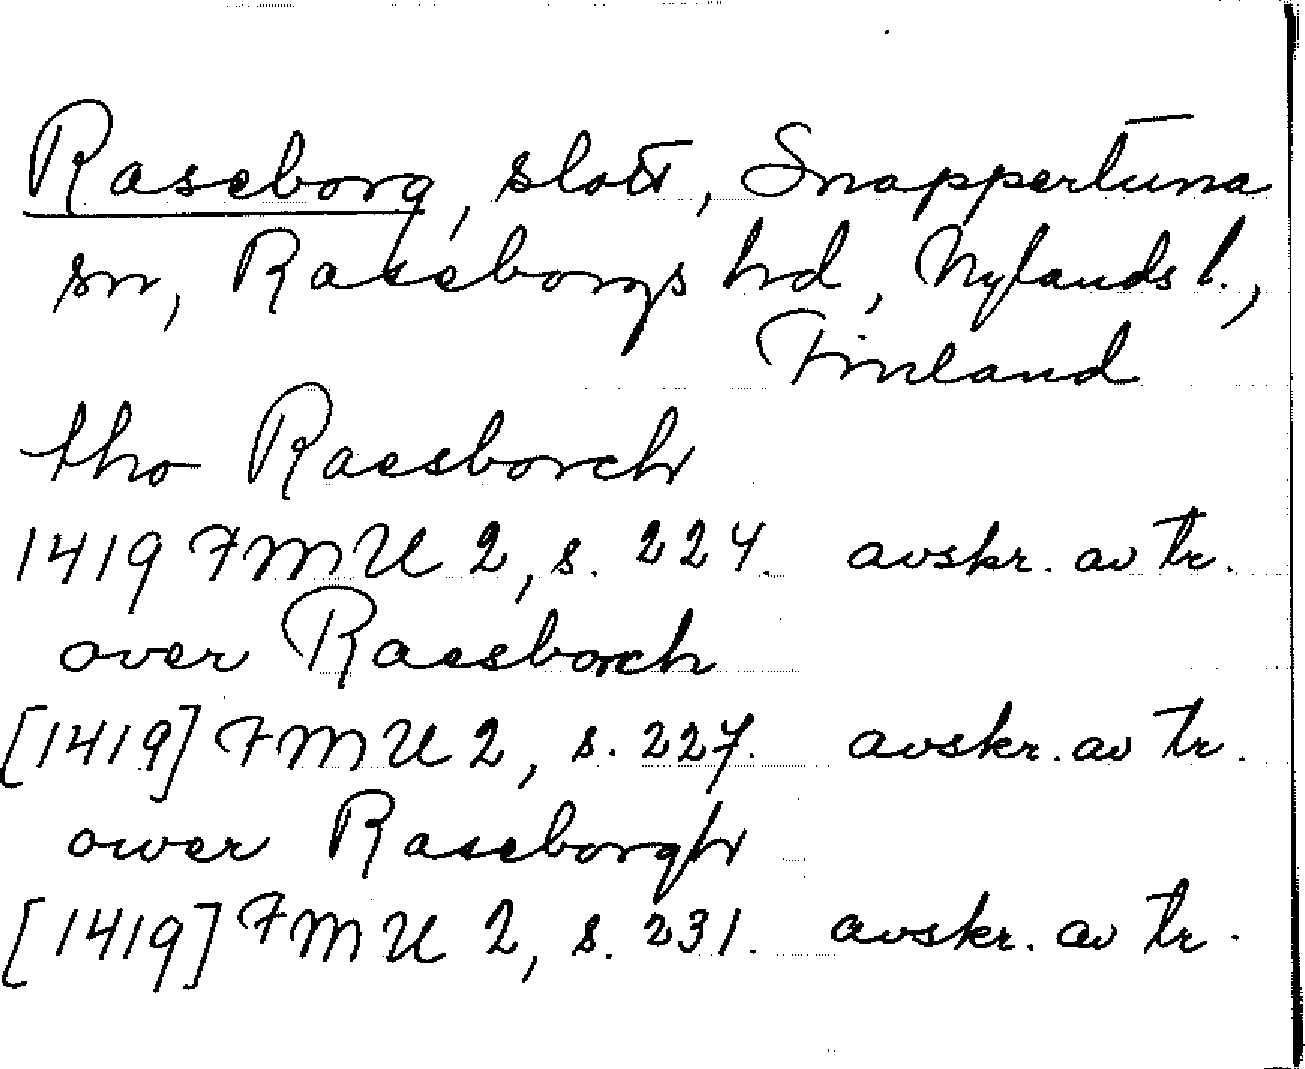 Raseborg, slott, Snappertuna
sn, Raseborgs hd, Nylands l.,
Finland
tho Raesborch
1419 FMU 2, s. 224. avskr. av tr.
over Raesborch
[1419] FMU 2, s. 227. avskr. av tr.
ower Raseborgh
[1419] FMU 2, s. 231. avskr. av tr.